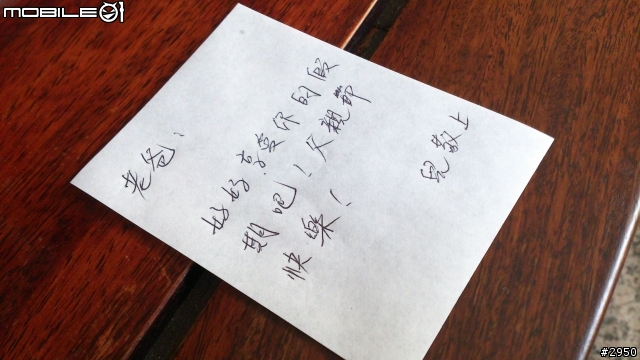 MOBILE01
老爸：
好好享受你的假
期吧！父親節
快樂！
兒敬上
#2950